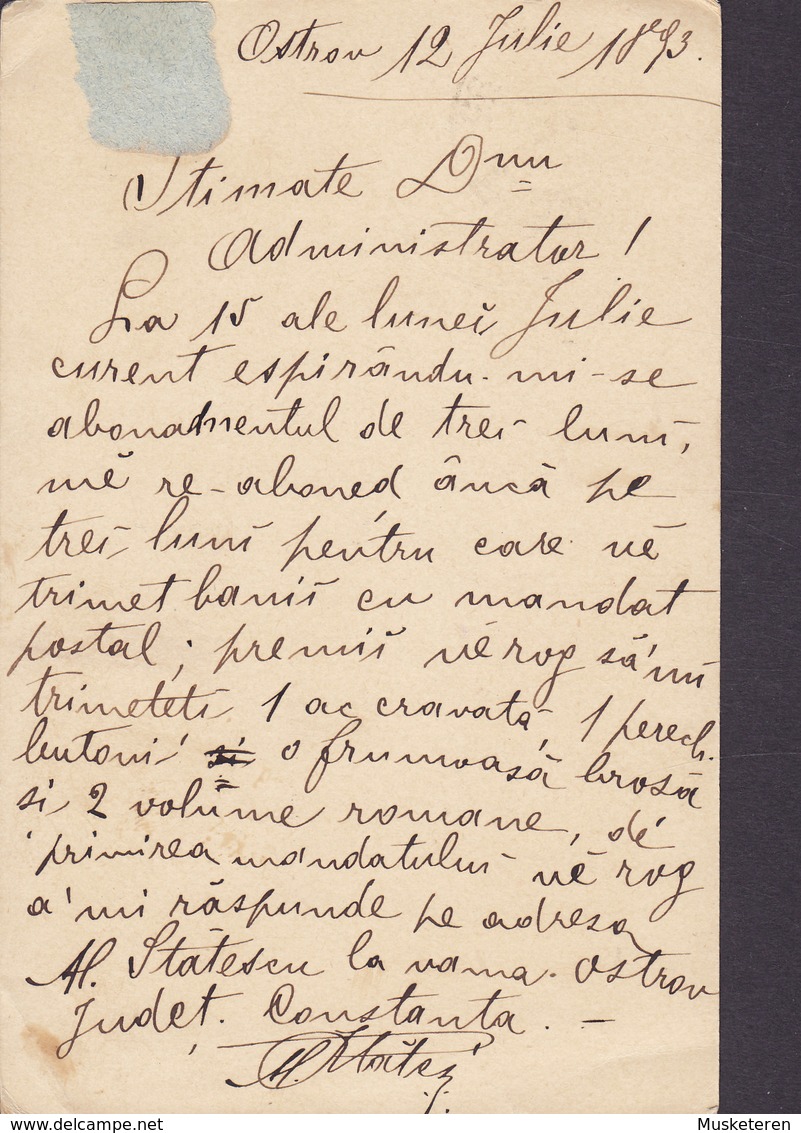 Ostrov 12 Julie 1893.
Stimate Dnu
Administrator!
La 15 ale luneĭ Julie
curent espirându-mi-se
abonamentul de treĭ lunĭ,
mĕ re-aboned âncă pe
treĭ lunĭ pentru care vĕ
trimet baniĭ cu mandat
postal; premiĭ vĕ rog să'mĭ
trimetetĭ 1 ac cravată, 1 perech.
butoni si o frumoasă brosă
si 2 volume romane, de
primirea mandatuluĭ vĕ rog
a'mi răspunde pe adresa
M. Stătescu la vama. Ostrov
Judet. Constanta. —
Musketeren